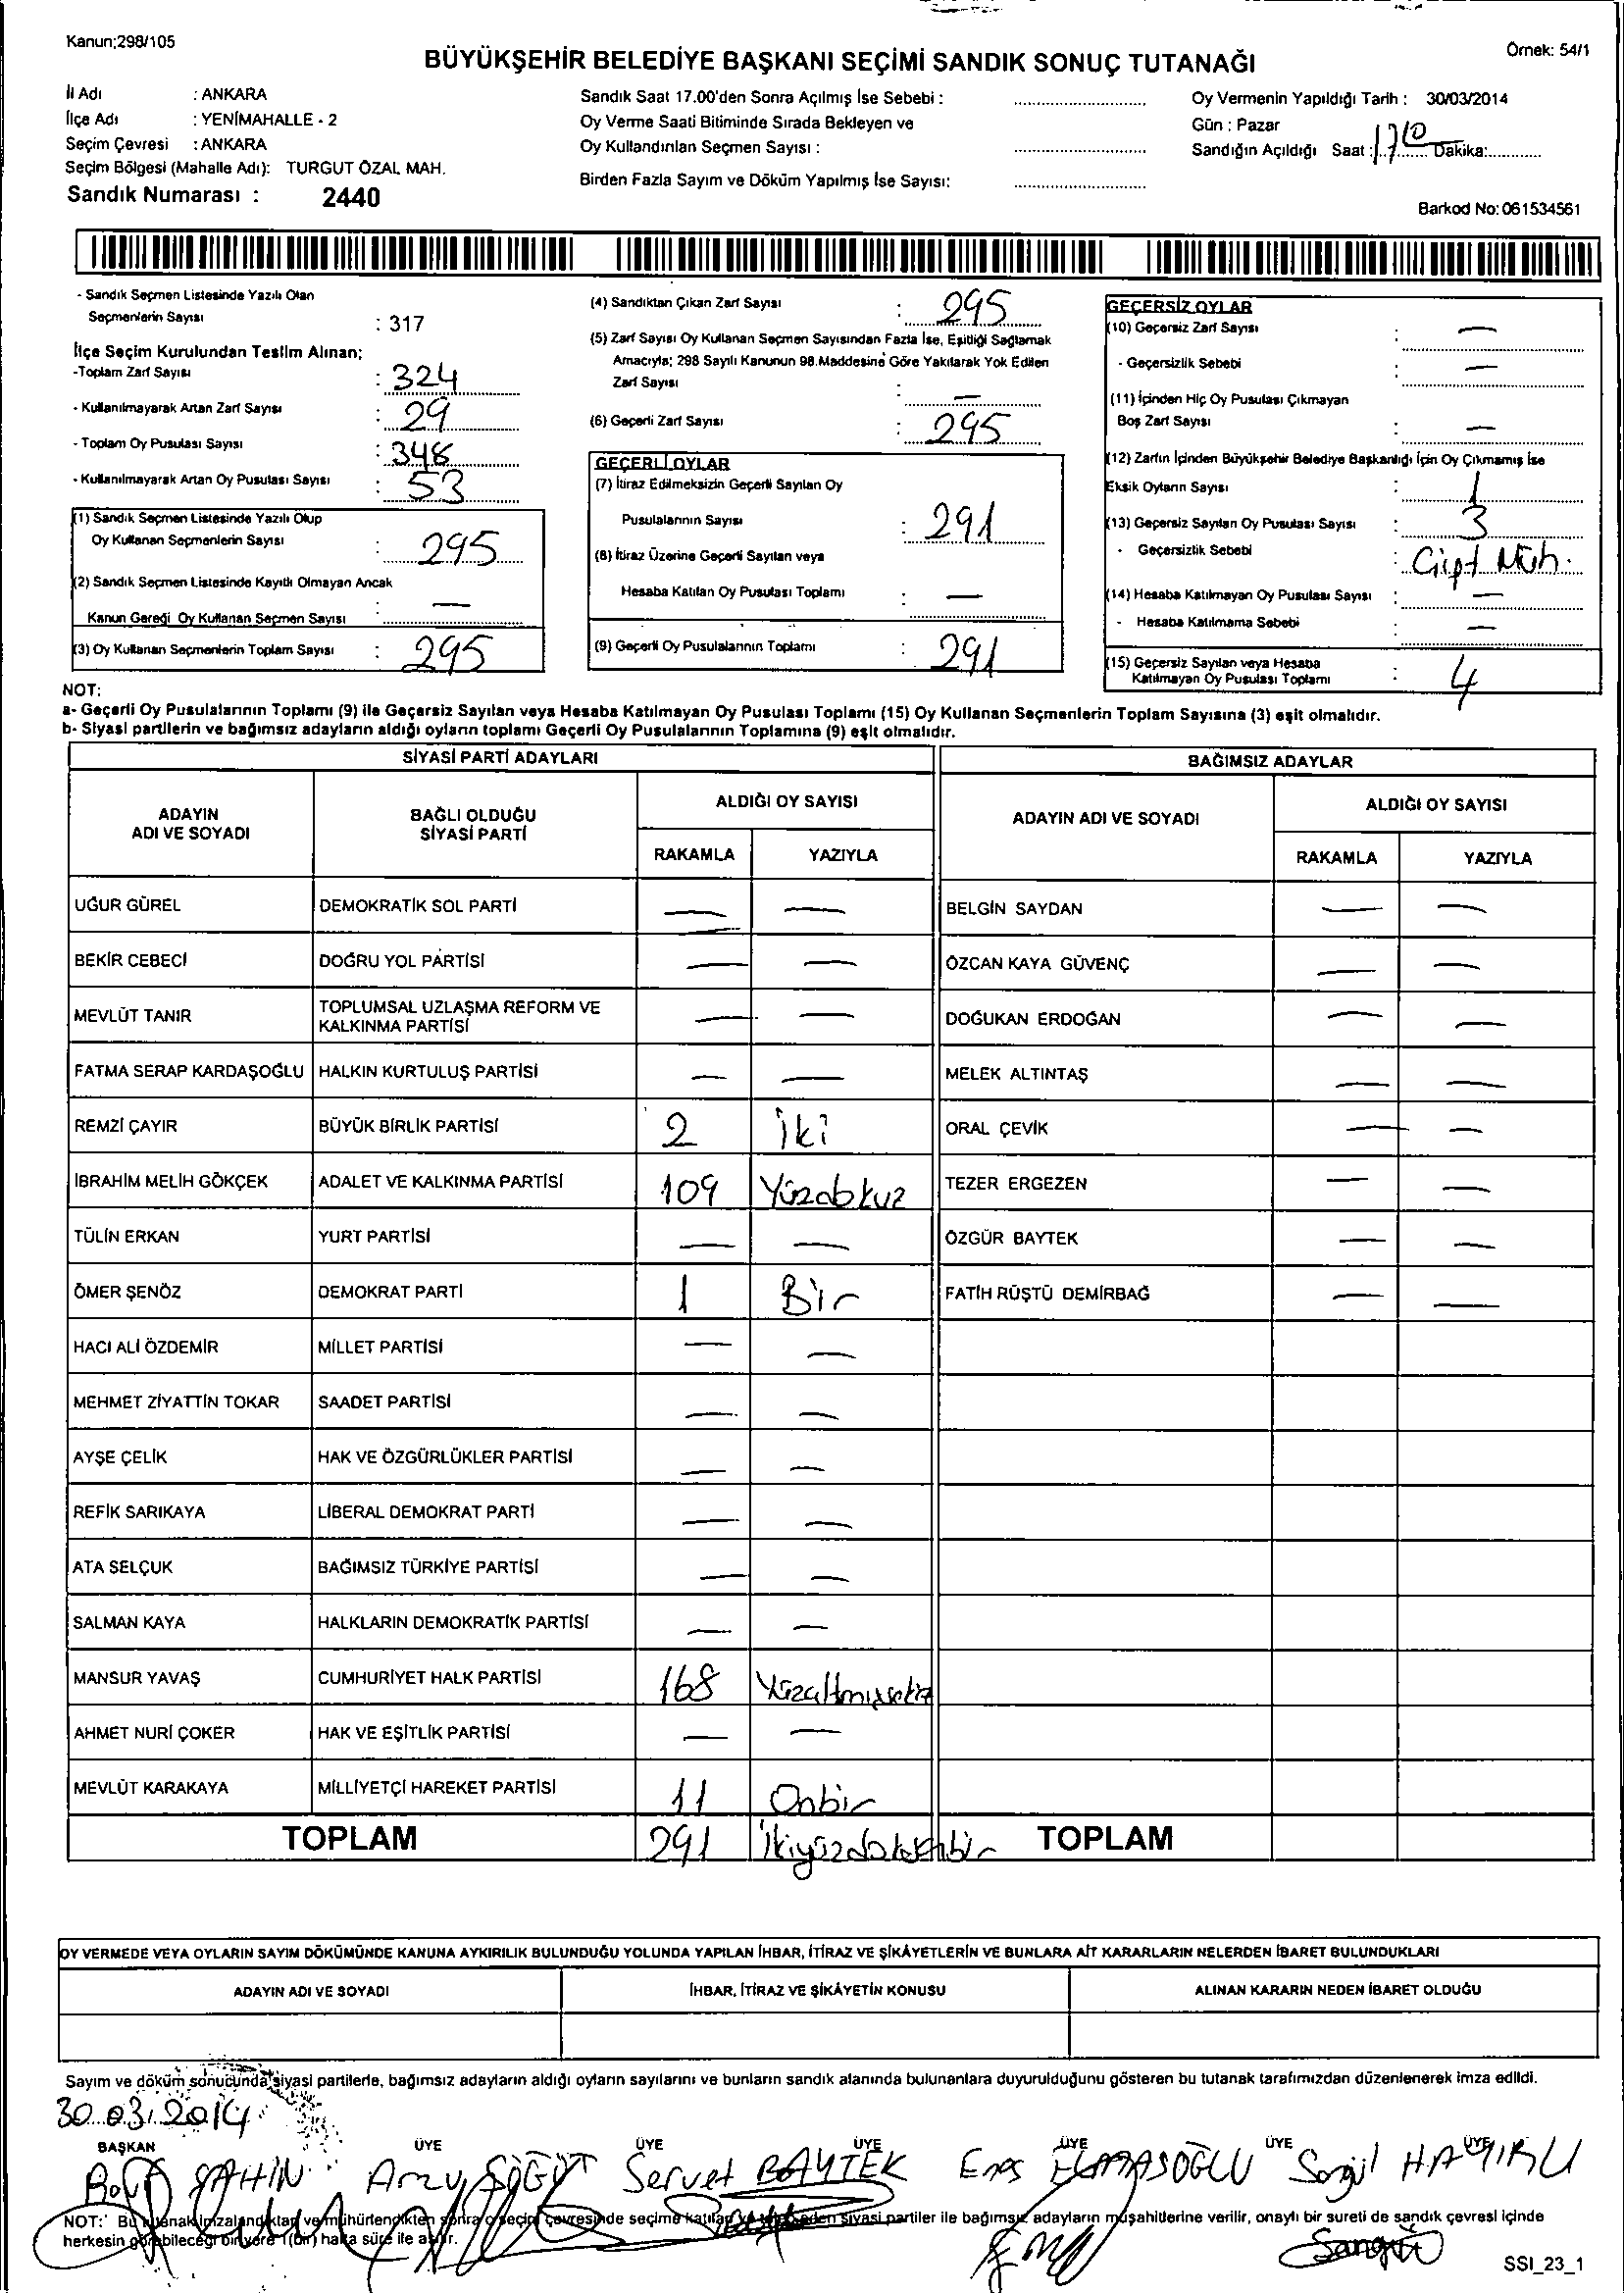 Kanun;298/105
Örnek: 54/1
BÜYÜKŞEHİR BELEDİYE BAŞKANI SEÇİMİ SANDIK SONUÇ TUTANAĞI
İl Adı : ANKARA
İlçe Adı : YENİMAHALLE - 2
Seçim Çevresi : ANKARA
Seçim Bölgesi (Mahalle Adı): TURGUT ÖZAL MAH.
Sandık Numarası : 2440
Sandık Saat 17.00'den Sonra Açılmış İse Sebebi :
Oy Verme Saati Bitiminde Sırada Bekleyen ve
Oy Kullandırılan Seçmen Sayısı :
Birden Fazla Sayım ve Döküm Yapılmış İse Sayısı:
Oy Vermenin Yapıldığı Tarih : 30/03/2014
Gün : Pazar
Sandığın Açıldığı Saat : 17 10 Dakika:
Barkod No: 061534561
- Sandık Seçmen Listesinde Yazılı Olan
Seçmenlerin Sayısı : 317
İlçe Seçim Kurulundan Teslim Alınan;
-Toplam Zarf Sayısı : 324
- Kullanılmayarak Artan Zarf Sayısı : 29
- Toplam Oy Pusulası Sayısı : 348
- Kullanılmayarak Artan Oy Pusulası Sayısı : 53
(1) Sandık Seçmen Listesinde Yazılı Olup
Oy Kullanan Seçmenlerin Sayısı : 295
(2) Sandık Seçmen Listesinde Kayıtlı Olmayan Ancak
Kanun Gereği Oy Kullanan Seçmen Sayısı : —
(3) Oy Kullanan Seçmenlerin Toplam Sayısı : 295
(4) Sandıktan Çıkan Zarf Sayısı : 295
(5) Zarf Sayısı Oy Kullanan Seçmen Sayısından Fazla İse, Eşitliği Sağlamak
Amacıyla; 298 Sayılı Kanunun 98.Maddesine Göre Yakılarak Yok Edilen
Zarf Sayısı : —
(6) Geçerli Zarf Sayısı : 295
GEÇERLİ OYLAR
(7) İtiraz Edilmeksizin Geçerli Sayılan Oy
Pusulalarının Sayısı : 291
(8) İtiraz Üzerine Geçerli Sayılan veya
Hesaba Katılan Oy Pusulası Toplamı : —
(9) Geçerli Oy Pusulalarının Toplamı : 291
GEÇERSİZ OYLAR
(10) Geçersiz Zarf Sayısı : —
- Geçersizlik Sebebi : —
(11) İçinden Hiç Oy Pusulası Çıkmayan
Boş Zarf Sayısı : —
(12) Zarfın İçinden Büyükşehir Belediye Başkanlığı İçin Oy Çıkmamış İse
Eksik Oyların Sayısı : 1
(13) Geçersiz Sayılan Oy Pusulası Sayısı : 3
- Geçersizlik Sebebi : Çift Müh.
(14) Hesaba Katılmayan Oy Pusulası Sayısı : —
- Hesaba Katılmama Sebebi : —
(15) Geçersiz Sayılan veya Hesaba
Katılmayan Oy Pusulası Toplamı : 4
NOT:
a- Geçerli Oy Pusulalarının Toplamı (9) ile Geçersiz Sayılan veya Hesaba Katılmayan Oy Pusulası Toplamı (15) Oy Kullanan Seçmenlerin Toplam Sayısına (3) eşit olmalıdır.
b- Siyasi partilerin ve bağımsız adayların aldığı oyların toplamı Geçerli Oy Pusulalarının Toplamına (9) eşit olmalıdır.
SİYASİ PARTİ ADAYLARI BAĞIMSIZ ADAYLAR
ADAYIN ADI VE SOYADI BAĞLI OLDUĞU SİYASİ PARTİ ALDIĞI OY SAYISI ADAYIN ADI VE SOYADI ALDIĞI OY SAYISI
RAKAMLA YAZIYLA RAKAMLA YAZIYLA
UĞUR GÜREL DEMOKRATİK SOL PARTİ — — BELGİN SAYDAN — —
BEKİR CEBECİ DOĞRU YOL PARTİSİ — — ÖZCAN KAYA GÜVENÇ — —
MEVLÜT TANIR TOPLUMSAL UZLAŞMA REFORM VE KALKINMA PARTİSİ — — DOĞUKAN ERDOĞAN — —
FATMA SERAP KARDAŞOĞLU HALKIN KURTULUŞ PARTİSİ — — MELEK ALTINTAŞ — —
REMZİ ÇAYIR BÜYÜK BİRLİK PARTİSİ 2 İki ORAL ÇEVİK — —
İBRAHİM MELİH GÖKÇEK ADALET VE KALKINMA PARTİSİ 109 Yüzdokuz TEZER ERGEZEN — —
TÜLİN ERKAN YURT PARTİSİ — — ÖZGÜR BAYTEK — —
ÖMER ŞENÖZ DEMOKRAT PARTİ 1 Bir FATİH RÜŞTÜ DEMİRBAĞ — —
HACI ALİ ÖZDEMİR MİLLET PARTİSİ — —
MEHMET ZİYATTİN TOKAR SAADET PARTİSİ — —
AYŞE ÇELİK HAK VE ÖZGÜRLÜKLER PARTİSİ — —
REFİK SARIKAYA LİBERAL DEMOKRAT PARTİ — —
ATA SELÇUK BAĞIMSIZ TÜRKİYE PARTİSİ — —
SALMAN KAYA HALKLARIN DEMOKRATİK PARTİSİ — —
MANSUR YAVAŞ CUMHURİYET HALK PARTİSİ 168 Yüzaltmışsekiz
AHMET NURİ ÇOKER HAK VE EŞİTLİK PARTİSİ — —
MEVLÜT KARAKAYA MİLLİYETÇİ HAREKET PARTİSİ 11 Onbir
TOPLAM 291 İkiyüzdoksanbir TOPLAM
OY VERMEDE VEYA OYLARIN SAYIM DÖKÜMÜNDE KANUNA AYKIRILIK BULUNDUĞU YOLUNDA YAPILAN İHBAR, İTİRAZ VE ŞİKÂYETLERİN VE BUNLARA AİT KARARLARIN NELERDEN İBARET BULUNDUKLARI
ADAYIN ADI VE SOYADI İHBAR, İTİRAZ VE ŞİKÂYETİN KONUSU ALINAN KARARIN NEDEN İBARET OLDUĞU
Sayım ve döküm sonucunda siyasi partilerle, bağımsız adayların aldığı oyların sayılarını ve bunların sandık alanında bulunanlara duyurulduğunu gösteren bu tutanak tarafımızdan düzenlenerek imza edildi.
30.03.2014
BAŞKAN ÜYE ÜYE ÜYE ÜYE ÜYE ÜYE
ŞAHİN Arzu SÖĞÜT Servet BAYTEK Enes Songül HAYIRLI
NOT: Bu tutanak imzalandıktan ve mühürlendikten sonra o seçim çevresinde seçime katılan siyasi partiler ile bağımsız adayların müşahitlerine verilir, onaylı bir sureti de sandık çevresi içinde
herkesin görebileceği bir yere 1(bir) hafta süre ile asılır.
SSI_23_1